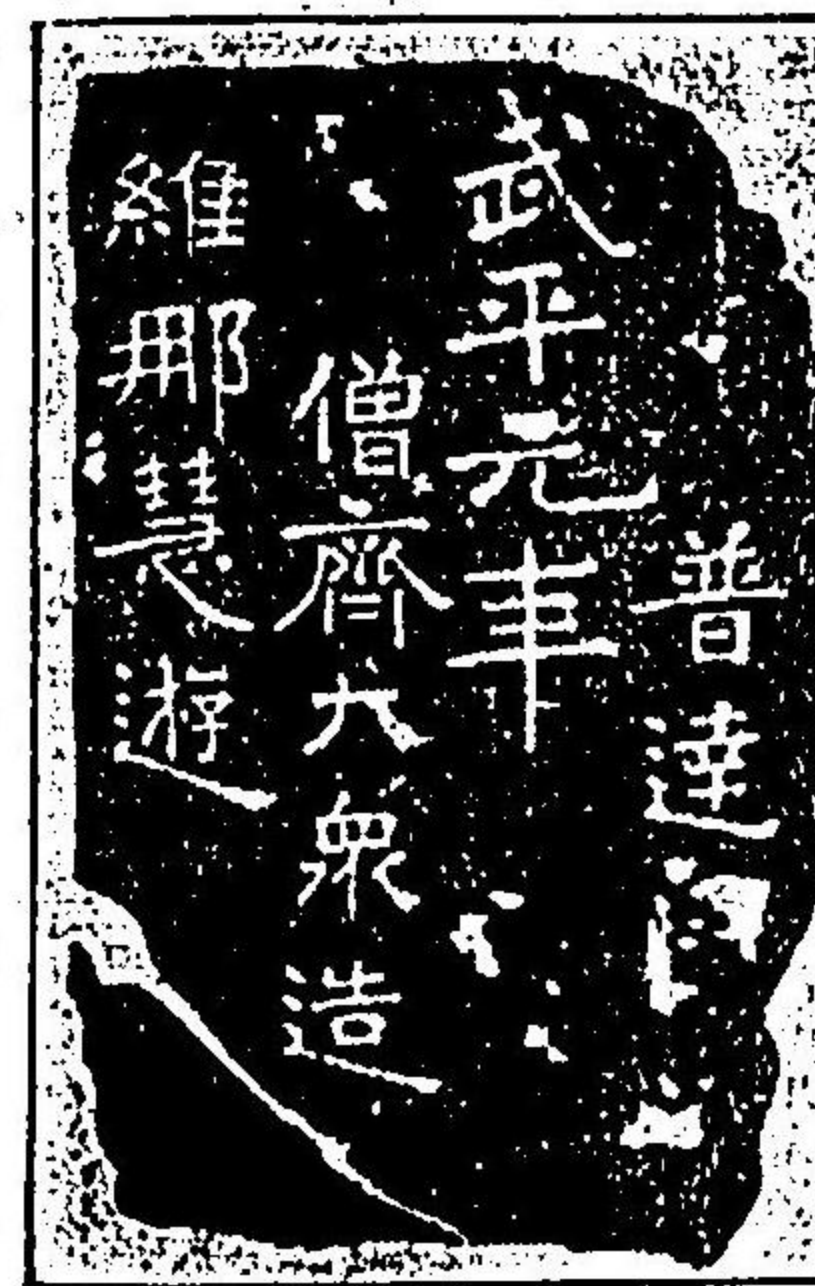 普達
武平元年
僧齊大衆造
維那慧遊